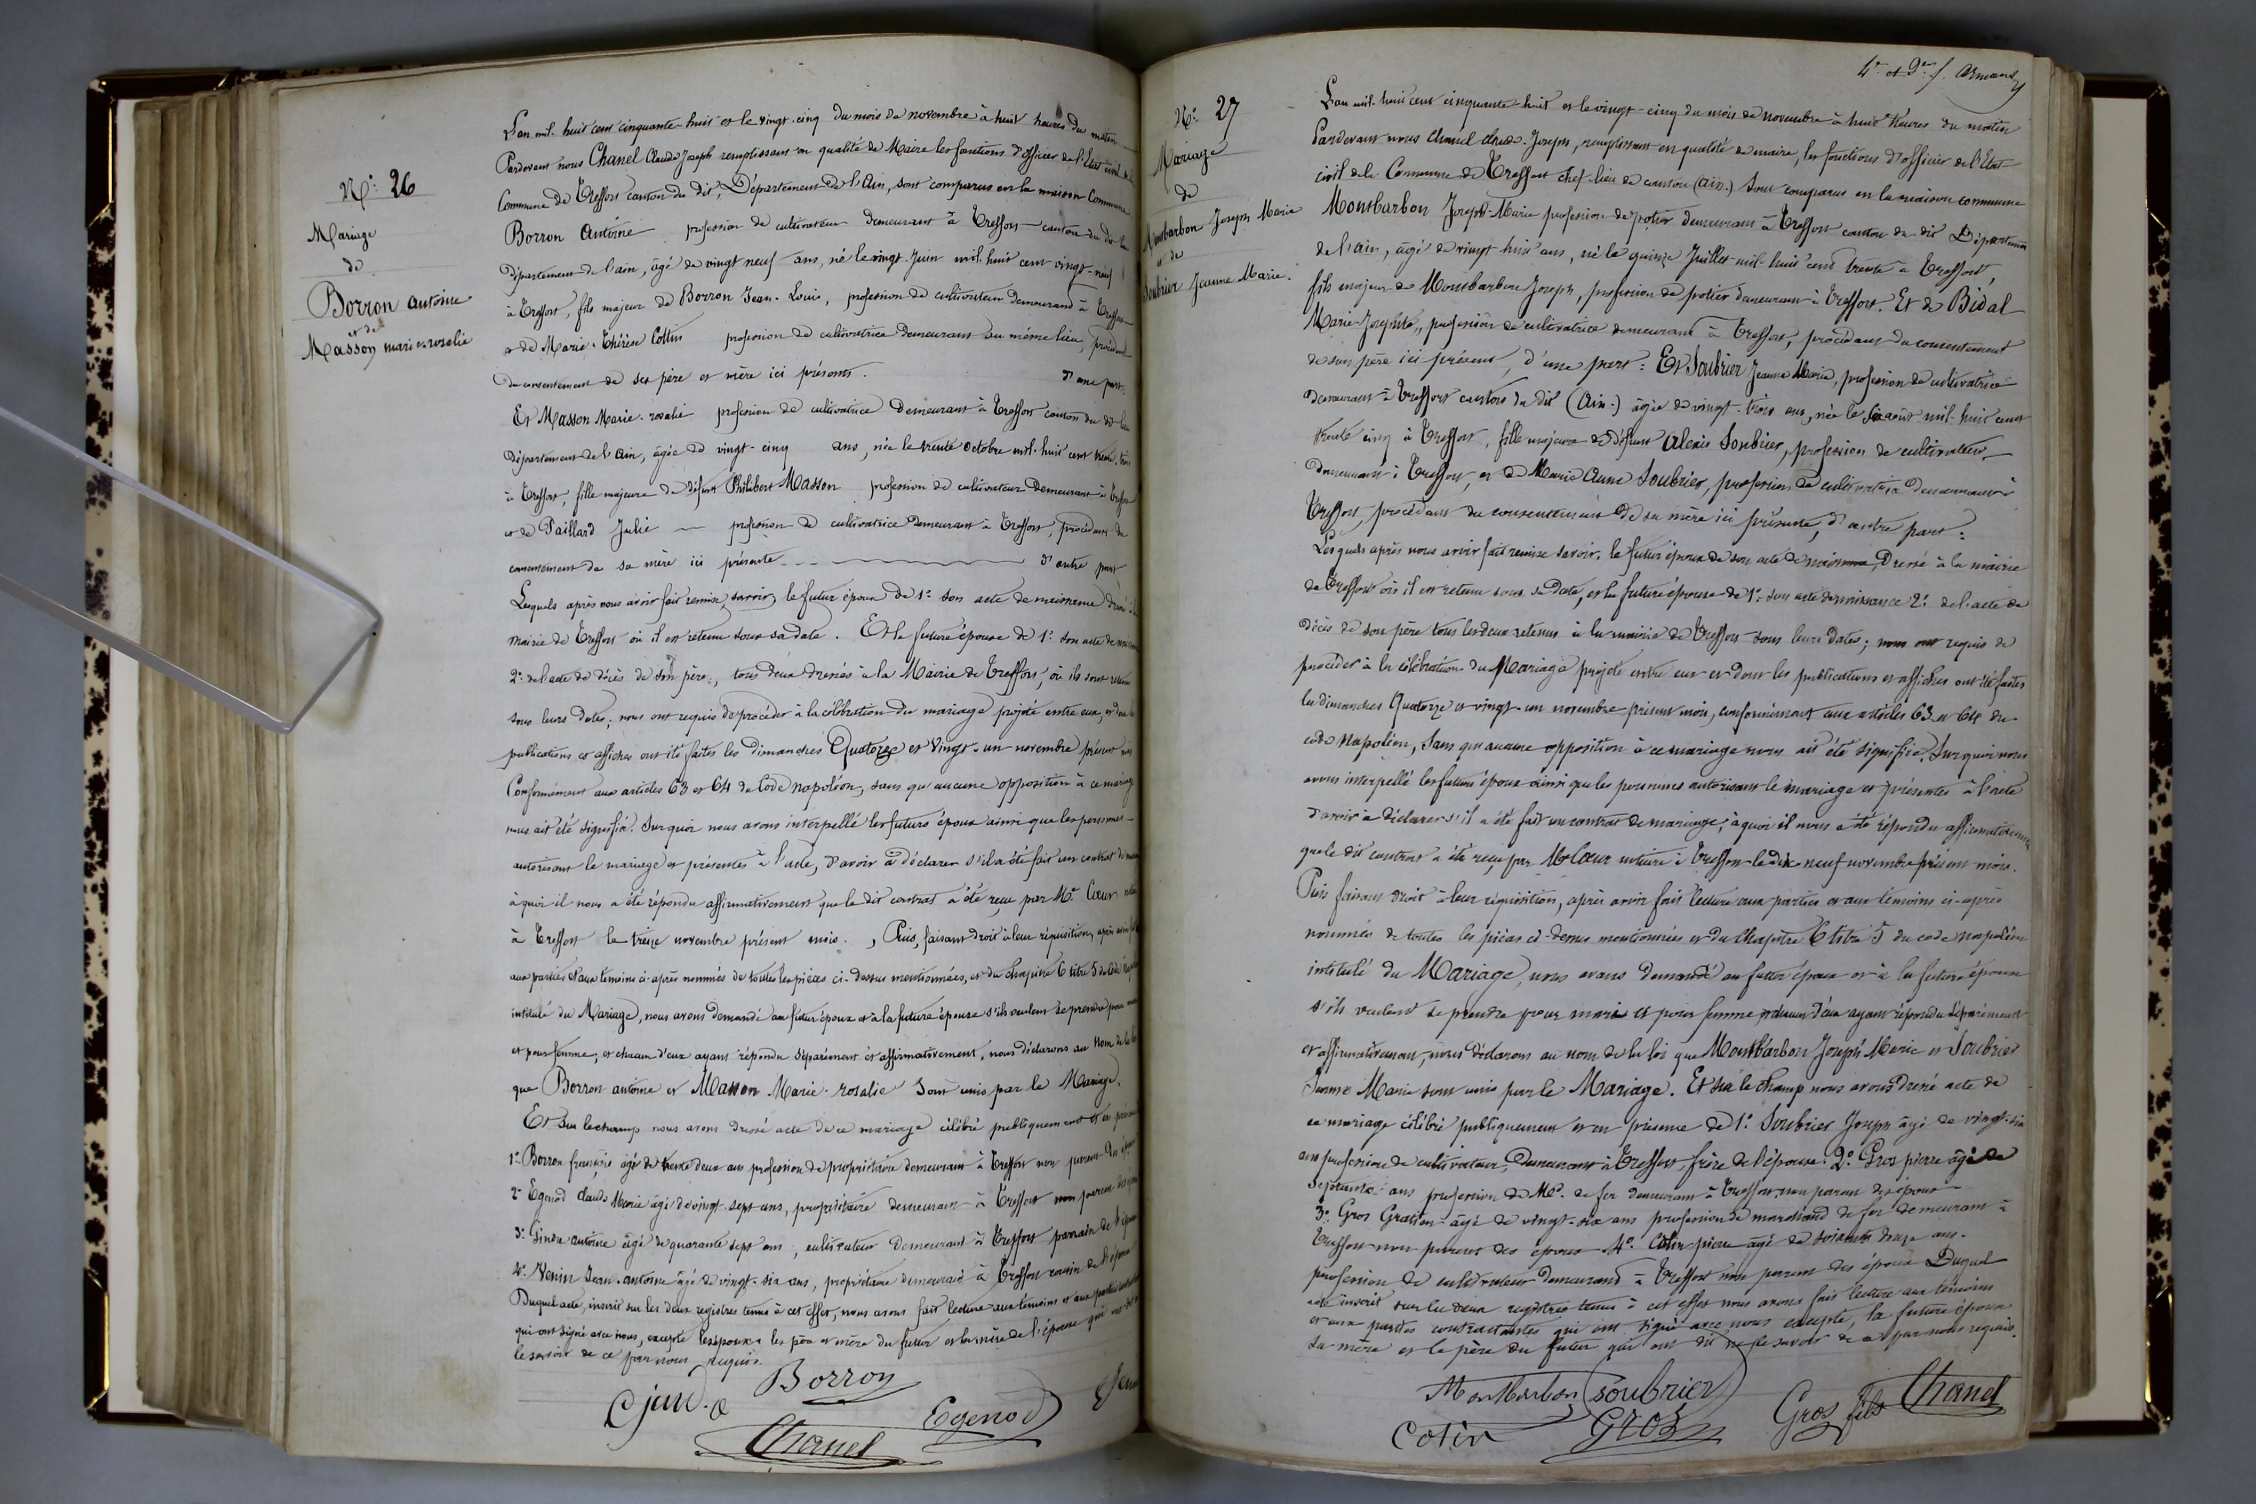 N.° 26
Mariage
de
Borron antoine
et de
Masson marie-rosalie
L'an mil-huit cent cinquante-huit et le vingt-cinq du mois de novembre à huit heures du matin
Pardevant nous Chanel Claude Joseph remplissant en qualité de Maire les fonctions d'officier de l'Etat civil de la
Commune de Treffort canton du dit, Département de l'Ain, sont comparus en la maison Commune
Borron Antoine profession de cultivateur demeurant à Treffort canton du dit lieu
département de l'ain, âgé de vingt neuf ans, né le vingt Juin mil-huit cent vingt-neuf
à Treffort, fils majeur de Borron Jean-Louis, profession de cultivateur demeurant à Treffort
et de Marie-Thérèse Collin profession de cultivatrice demeurant au même lieu, procédant
du consentement de ses père et mère ici présents. d'une part.
Et Masson Marie-rosalie profession de cultivatrice demeurant à Treffort canton du dit lieu
département de l'ain, âgée de vingt-cinq ans, née le trente octobre mil-huit cent trente-trois
à Treffort, fille majeure de défunt Philibert Masson profession de cultivateur demeurant à Treffort
et de Paillard Julie profession de cultivatrice demeurant à Treffort, procédant du
consentement de sa mère ici présente d'autre part
Lesquels après nous avoir fait remise, savoir, le futur époux de 1° son acte de naissance dressé à la
mairie de Treffort où il est retenu sous sa date. Et la future épouse de 1° son acte de naissance
2° de l'acte de décès de son père, tous deux dressés à la Mairie de Treffort, où ils sont retenus
sous leurs dates; nous ont requis de procéder à la célébration du mariage projeté entre eux, et dont les
publications et affiches ont été faites les dimanches Quatorze et Vingt-un novembre présent mois
Conformément aux articles 63 et 64 du Code Napoléon, sans qu'aucune opposition à ce mariage
nous ait été signifié. Sur quoi nous avons interpellé les futurs époux ainsi que les personnes
autorisant le mariage et présentes à l'acte, d'avoir à déclarer s'il a été fait un contrat de mariage
à quoi il nous a été répondu affirmativement que le dit contrat a été reçu par Me Cœur notaire
à Treffort le treize novembre présent mois. Puis, faisant droit à leur réquisition, après avoir fait
aux parties et aux témoins ci-après nommés de toutes les pièces ci-dessus mentionnées, et du chapitre 6 titre 5 du Code Napoléon
intitulé du Mariage, nous avons demandé au futur époux et à la future épouse s'ils veulent se prendre pour mari
et pour femme, et chacun d'eux ayant répondu séparément et affirmativement, nous déclarons au nom de la loi
que Borron antoine et Masson Marie-rosalie sont unis par le Mariage.
Et sur le champ nous avons dressé acte de ce mariage célébré publiquement et en présence
1° Borron françois âgé de trente deux ans profession de propriétaire demeurant à Treffort non parent des époux
2° Egenod claude Marie âgé de vingt-sept ans, propriétaire demeurant à Treffort non parent des époux
3° antoine âgé de quarante sept ans, cultivateur demeurant à Treffort parrain de l'épouse
4° Venin Jean-antoine âgé de vingt-six ans, propriétaire demeurant à Treffort cousin de l'épouse
Duquel acte, inscrit sur les deux registres tenus à cet effet, nous avons fait lecture aux témoins et aux parties contractantes
qui ont signé avec nous, excepté les père et mère du futur et la mère de l'épouse qui ont dit ne
le savoir de ce par nous requis.
Borron
Egenod
Chanel
4e et 9e f.
N.° 27
Mariage
de
Montbarbon Joseph Marie
et de
Soubrier Jeanne Marie.
L'an mil-huit cent cinquante-huit et le vingt-cinq du mois de novembre à huit heures du matin
Pardevant nous Chanel Claude-Joseph, remplissant en qualité de maire, les fonctions d'officier de l'Etat
civil de la Commune de Treffort chef-lieu de canton (Ain.) sont comparus en la maison commune
Montbarbon Joseph-Marie profession de potier demeurant à Treffort canton du dit Département
de l'ain, âgé de vingt-huit ans, né le quinze Juillet mil-huit cent trente à Treffort,
fils majeur de Montbarbon Joseph, profession de potier demeurant à Treffort. Et de Bidal
Marie-Josephte, profession de cultivatrice demeurant à Treffort, procédant du consentement
de son père ici présent, d'une part: Et Soubrier Jeanne Marie, profession de cultivatrice
demeurant à Treffort canton du dit (Ain.) âgée de vingt-trois ans, née le six août mil-huit cent
trente cinq à Treffort, fille majeure de défunt Alexis Soubrier, profession de cultivateur
demeurant à Treffort, et de Marie Anne Soubrier, profession de cultivatrice demeurant à
Treffort, procédant du consentement de sa mère ici présente, d'autre part:
Lesquels après nous avoir fait remise savoir, le futur époux de son acte de naissance, dressé à la mairie
de Treffort où il est retenu sous sa date, et la future épouse de 1° son acte de naissance 2° de l'acte de
décès de son père tous les deux retenus à la mairie de Treffort sous leurs dates; nous ont requis de
procéder à la célébration du Mariage projeté entre eux et dont les publications et affiches ont été faites
les dimanches Quatorze et vingt-un novembre présent mois, conformément aux articles 63 et 64 du
code Napoléon, sans qu'aucune opposition à ce mariage nous ait été signifiée. Sur quoi nous
avons interpellé les futurs époux ainsi que les personnes autorisant le mariage et présentes à l'acte
d'avoir à déclarer s'il a été fait un contrat de mariage, à quoi il nous a été répondu affirmativement
que le dit contrat a été reçu par Me Cœur notaire à Treffort le dix neuf novembre présent mois.
Puis faisant droit à leur réquisition, après avoir fait lecture aux parties et aux témoins ci-après
nommés de toutes les pièces ci-dessus mentionnées et du Chapitre 6 titre 5 du code Napoléon
intitulé du Mariage, nous avons demandé au futur époux et à la future épouse
s'ils veulent se prendre pour mari et pour femme, chacun d'eux ayant répondu séparément
et affirmativement, nous déclarons au nom de la loi que Montbarbon Joseph Marie et Soubrier
Jeanne Marie sont unis par le Mariage. Et sur le champ nous avons dressé acte de
ce mariage célébré publiquement et en présence de 1° Soubrier Joseph âgé de vingt-six
ans profession de cultivateur, demeurant à Treffort, frère de l'épouse. 2° Gros pierre âgé de
septante ans profession de Md. de fer demeurant à Treffort non parent des époux
3° Gros Gratien âgé de vingt-six ans profession de marchand de fer demeurant à
Treffort non parent des époux 4° Cotin pierre âgé de soixante treize ans.
profession de cultivateur demeurant à Treffort non parent des époux Duquel
acte inscrit sur les deux registres tenus à cet effet nous avons fait lecture aux témoins
et aux parties contractantes qui ont signé avec nous excepté, la future épouse
sa mère et le père du futur qui ont dit ne le savoir de ce par nous requis.
Montbarbon Soubrier
Cotin Gros Gros fils Chanel